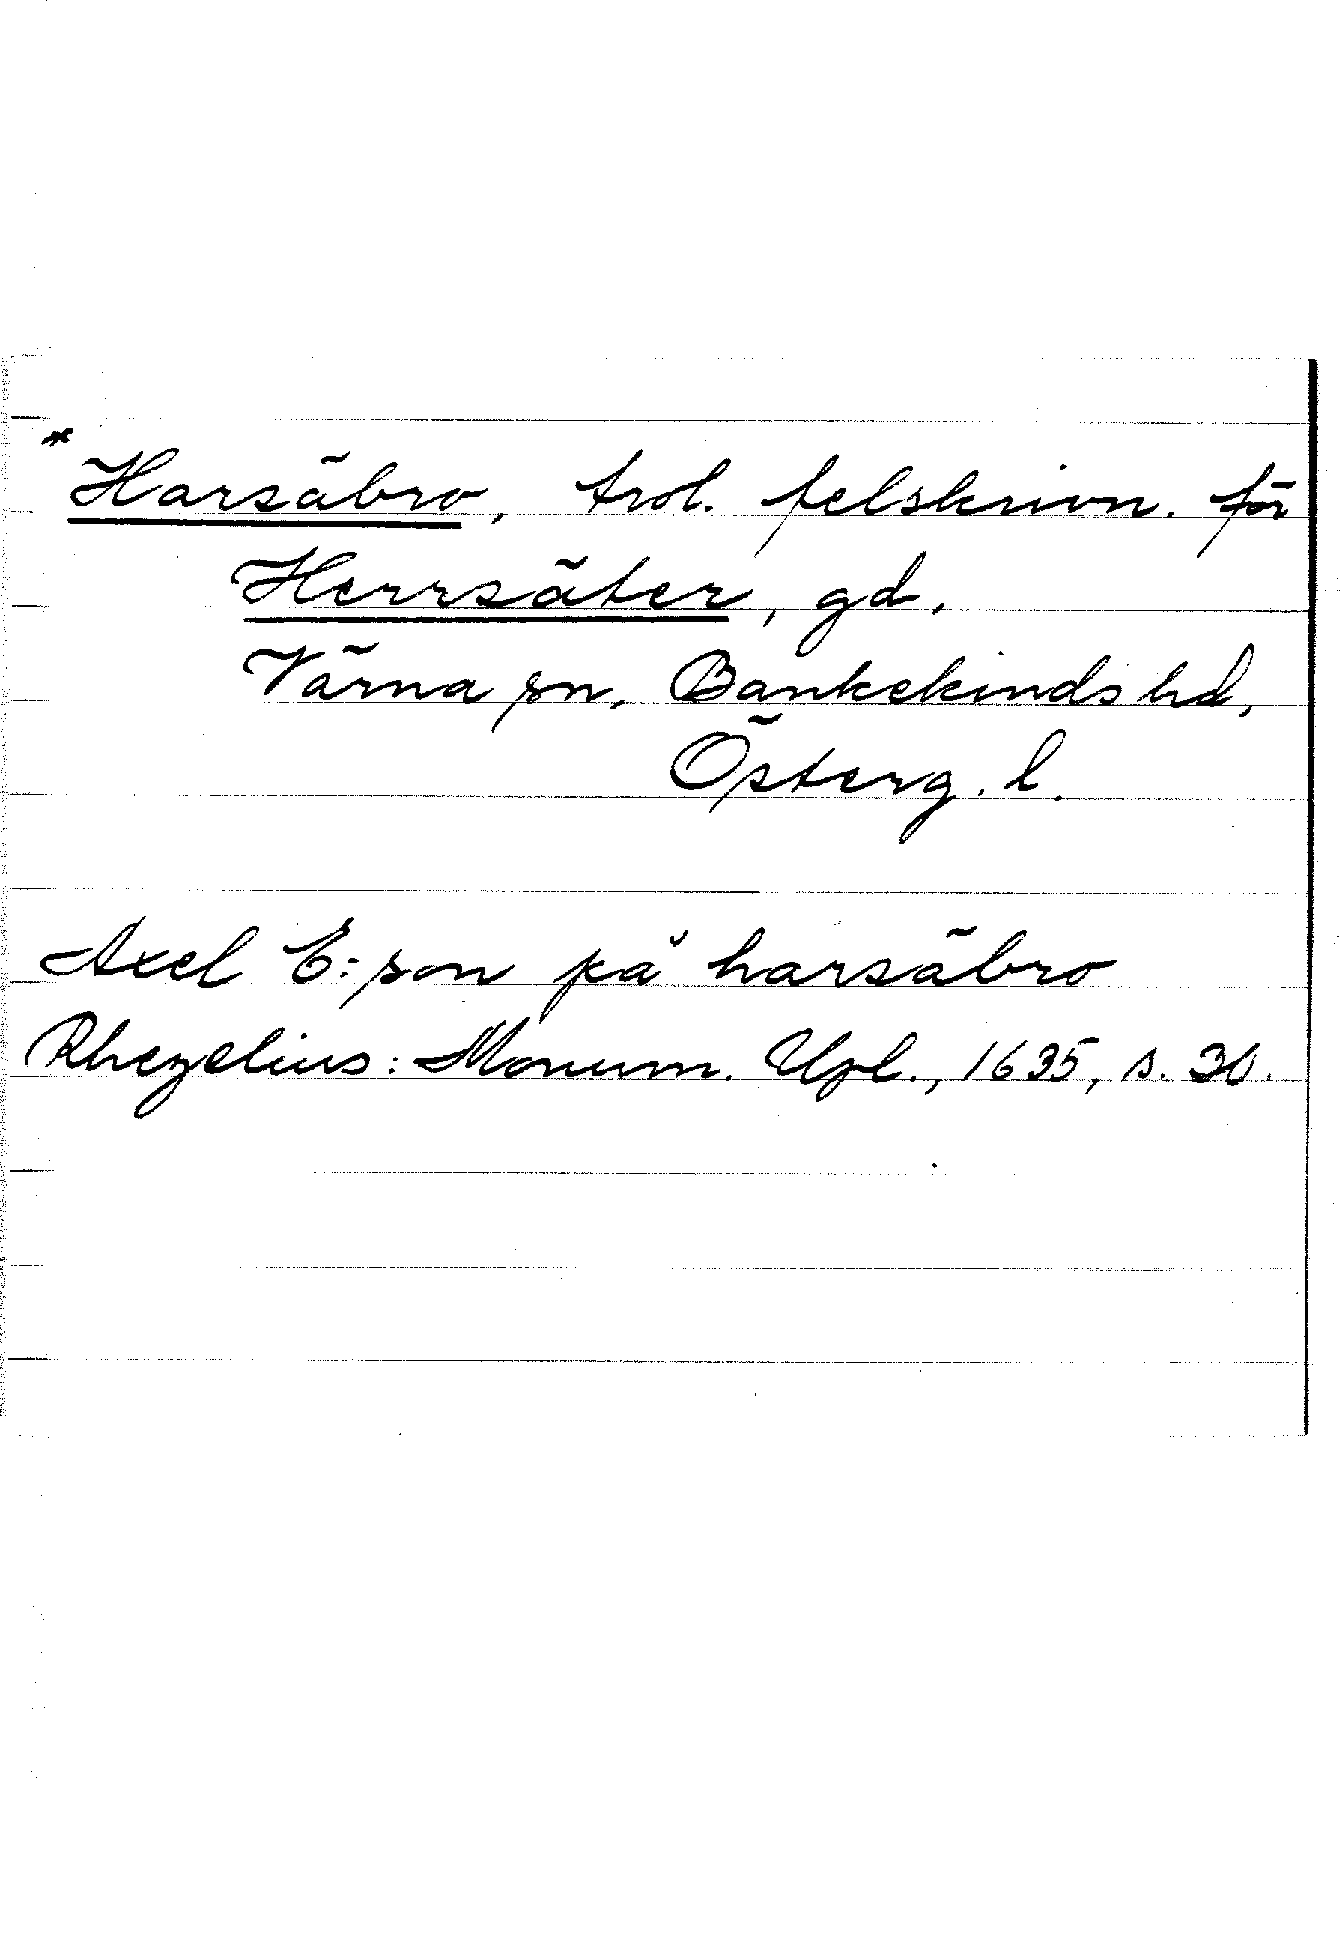 * Harsäbro, trol. felskrivn. för
Herrsäter, gd.
Värna sn, Bankekinds hd,
Österg. l.
Axel E:son på harsäbro
Rhezelius: Monum. Upl., 1635, s. 30.